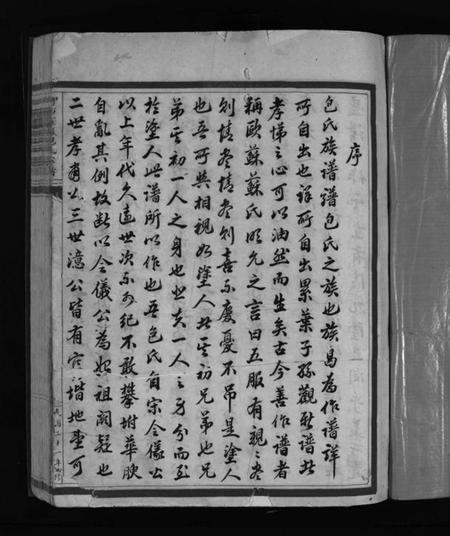 序
包氏族譜譜包氏之族也族曷為作譜詳
所自出也詳所自出累葉子孫觀斯譜北
孝悌之心可以油然而生矣古今善作譜者
稱歐蘇蘇氏明允之言曰五服有親〻盡
則情盡情盡則喜不慶憂不吊是塗人
也吾所與相視如塗人此其初兄弟也兄
弟其初一人之身也悲夫一人之身分而至
於塗人此譜所以作也吾包氏自宋令儀公
以上年代久遠世次不可紀不敢攀坿華腴
自亂其例故斷以令儀公為始祖闕疑也
二世孝肅公三世澺公皆有官堦地望可